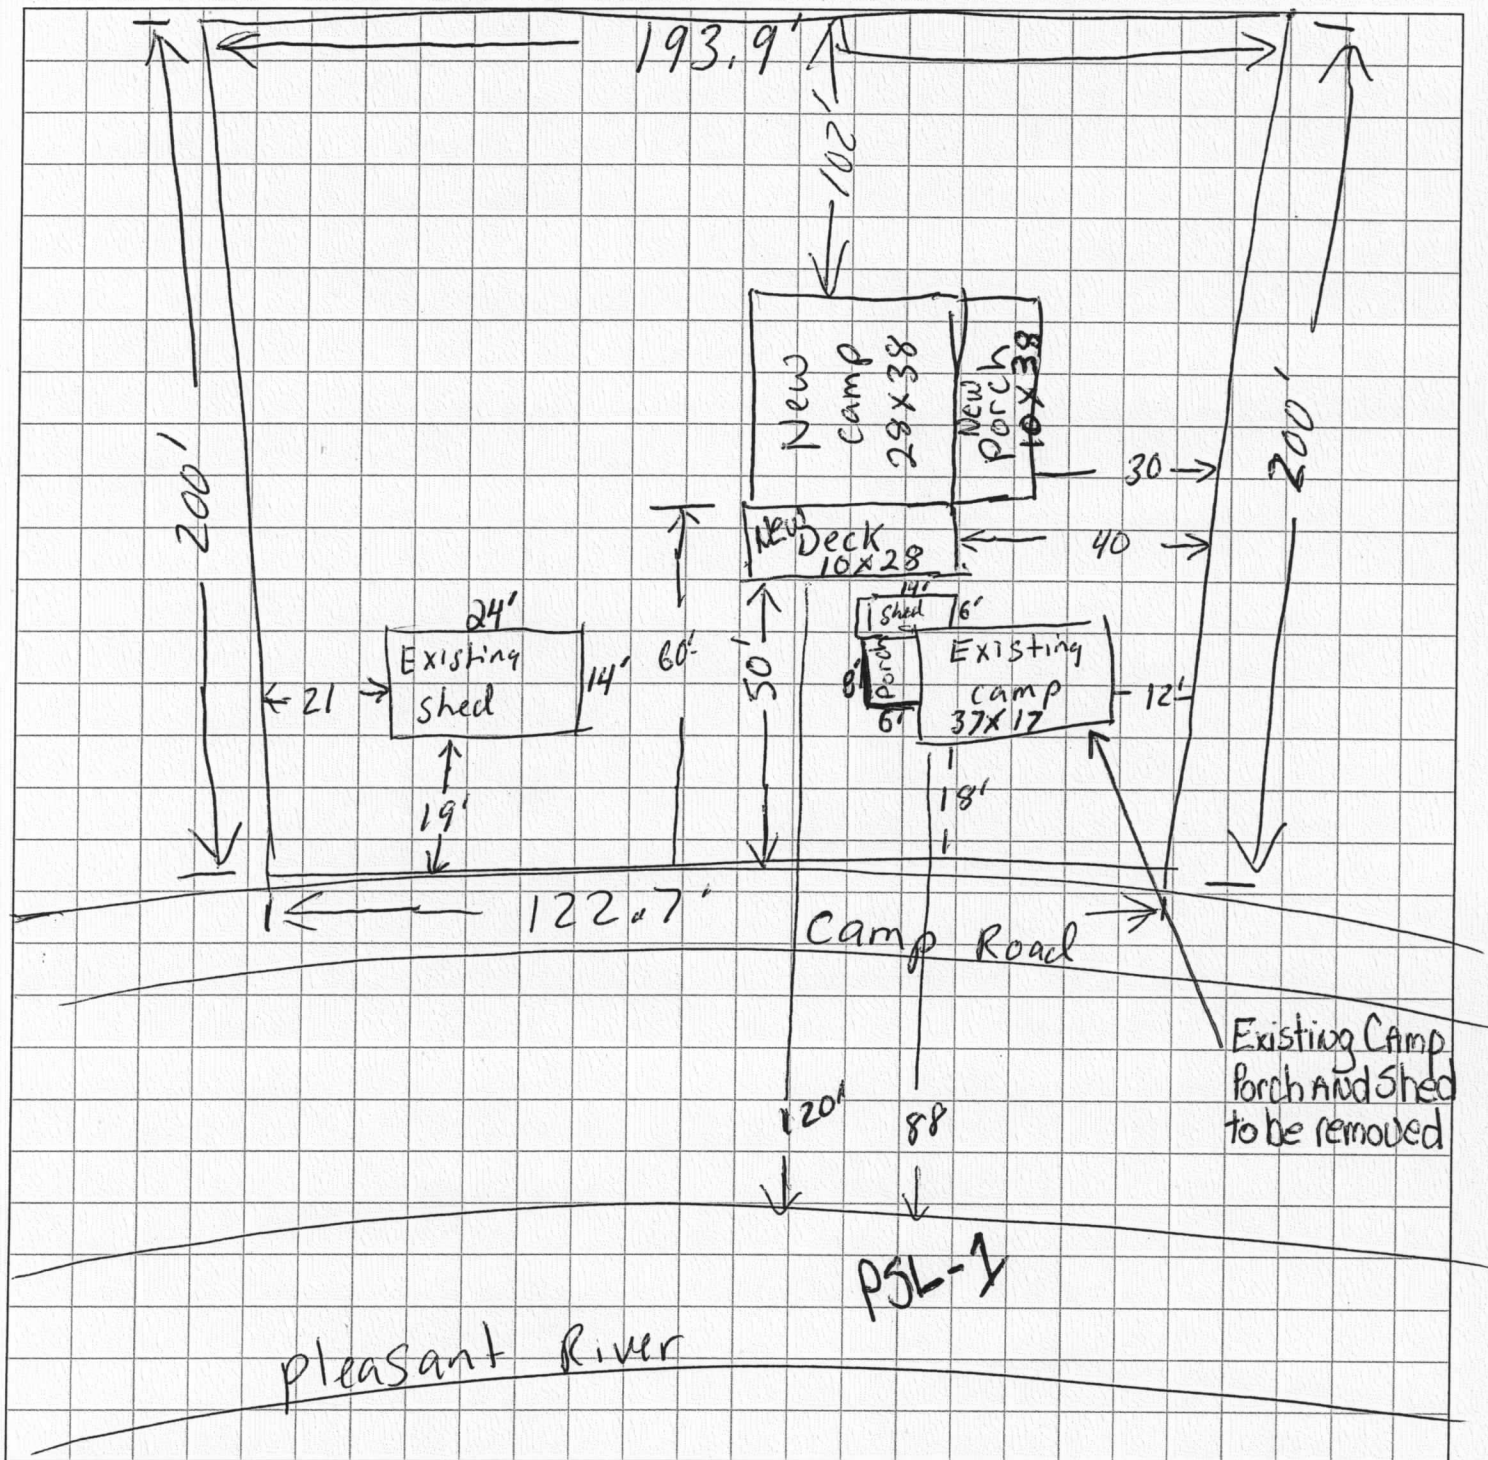 193.9'
102'
200'
200'
New
Camp
28X38
New
Porch
10X38
30
40
New Deck
10X28
14'
Shed
6'
24'
Existing
Shed
14'
21
19'
60'
50'
Porch
8'
6'
Existing
camp
37X17
12'
18'
122.7'
Camp Road
Existing Camp
Porch And Shed
to be removed
120'
88
PSL-1
Pleasant River